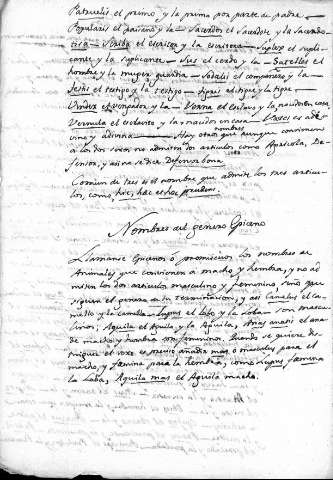 Patruelis el primo, y la prima por parte de padre.
Popularis el paisano y la Sacerdos el Sacerdote, y la Sacerdo
tisa. Scriba el escritor y la escritora. Suplex el supli-
cante y la suplicante. Sus el cerdo y la Satelles el
hombre y la muger guardia. Sodalis el compañero y la
Testis el testigo y la testigo. Tigris el tigre y la tigre.
Vindex el vengador, y la Verna el esclavo y la nacido en casa
Vernula el esclavito y la nacidos en casa. Vates el adi
vino y adivina. Hay otros nombres que aunque convienen
à los dos sexos, no admiten dos articulos como Agricola, De-
fensor, y asi no se dice Defensor bona.
Comun de tres es el nombre que admite los tres articu-
los, como, hic, haec et hoc prudens.
Nombres del genero Epiceno
Llamanse Epicenos ò promiscuos los nombres de
Animales que convienen à macho y hembra, y no ad
miten los dos articulos masculino y femenino, sino que
siguen el genero de su terminacion, y asi Camelus el ca-
mello y la camella Lupus el lobo y la Loba son mascu
linos; Aquila el Aguila y la Aguila, Anas anatis el ana
de macho y hembra son femeninos. Quando se quiere dis-
tinguir el sexo es preciso añadir mas ò masculus para el
macho, y foemina para la hembra, como Lupus foemina
la Loba, Aquila mas el Aguila macho.